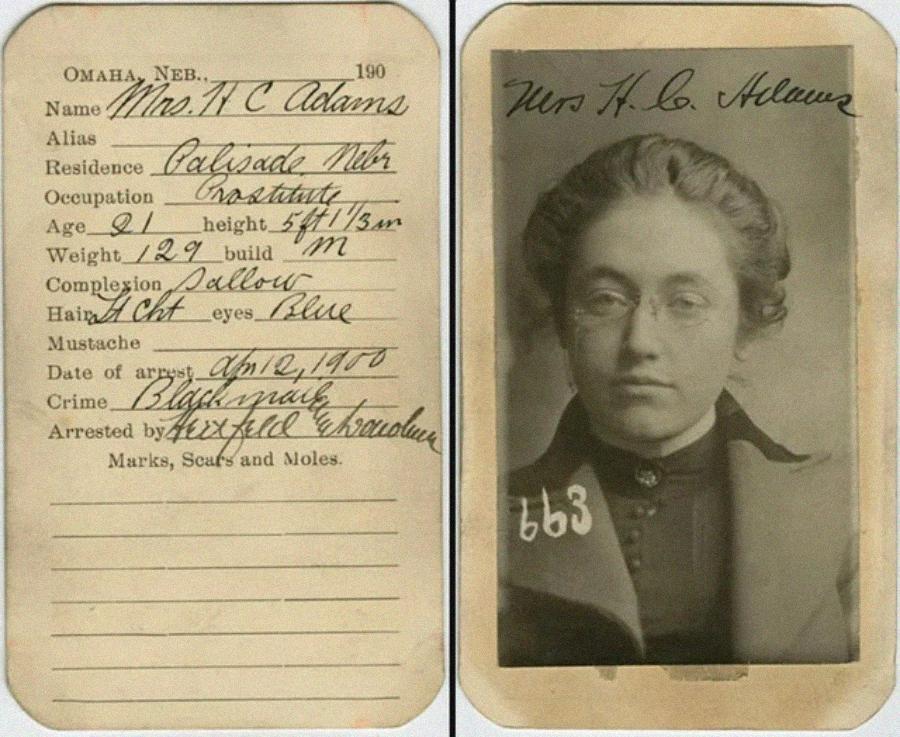 OMAHA, NEB., 190
Name Mrs. H C Adams
Alias
Residence Palisade, Nebr
Occupation Prostitute
Age 21 height 5ft 1 1/3 in
Weight 129 build M
Complexion Sallow
Hair Lt Cht eyes Blue
Mustache
Date of arrest Apr 12, 1900
Crime Blackmail
Arrested by
Marks, Scars and Moles.
Mrs H. C. Adams
663